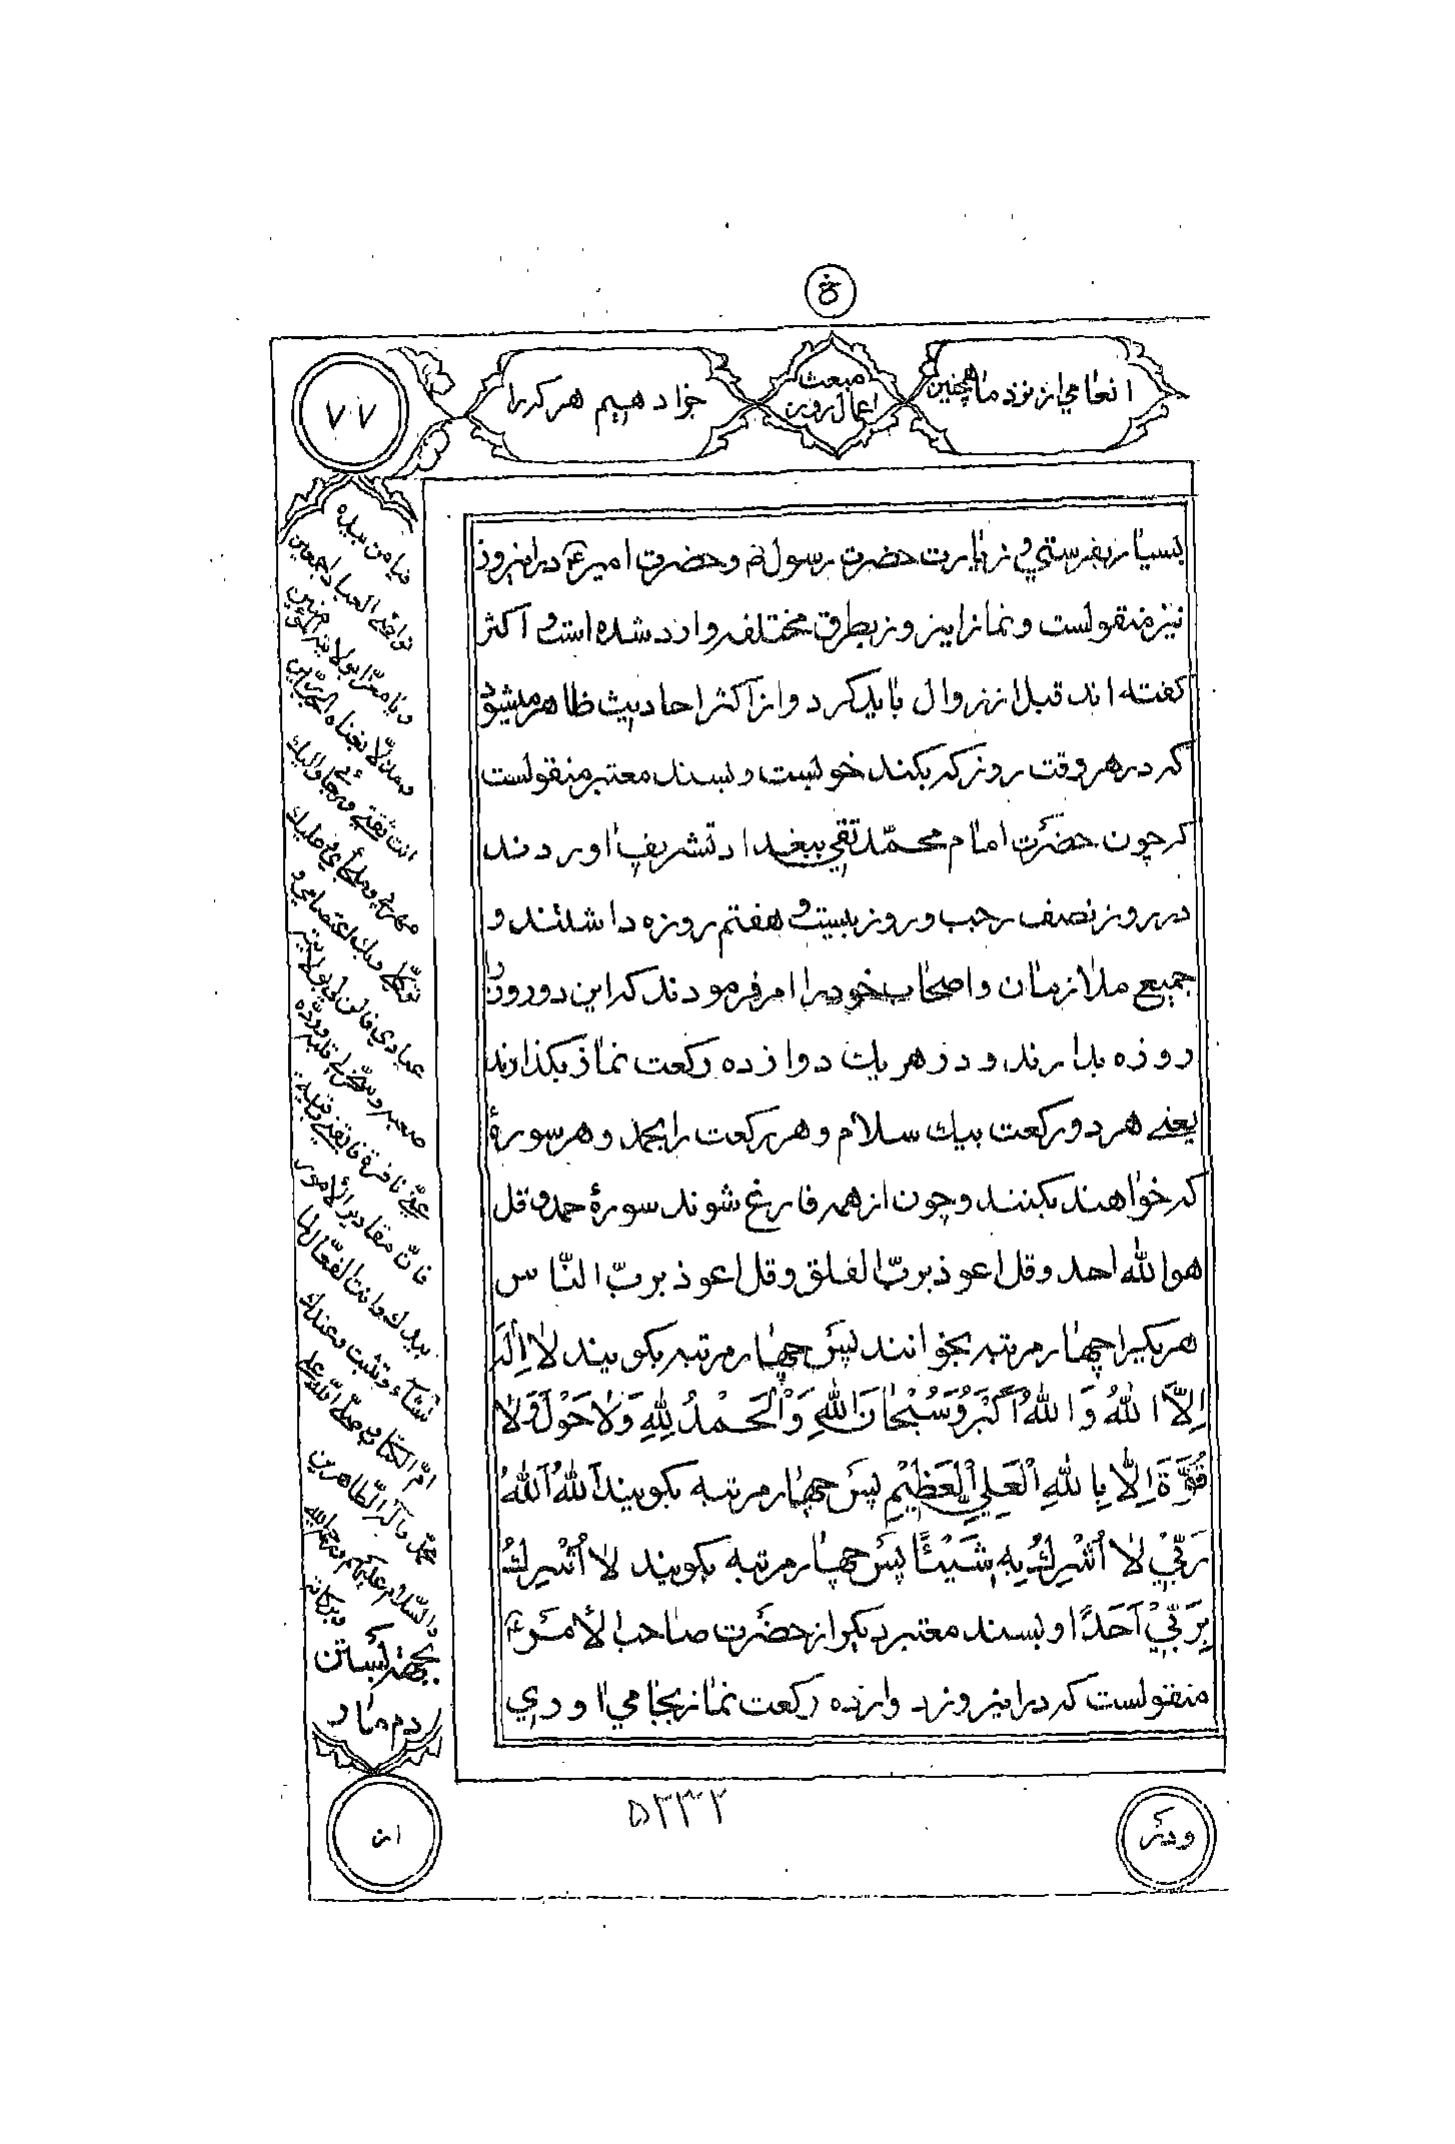 انعامي از نزد ما همچنین
مبعث
اعمال روز
جزا دهیم هر کرا
۷۷
بسیار بفرستي و زیارت حضرت رسول و حضرت امیر در اینروز
نیز منقولست و نماز اینروز بطرق مختلفه وارد شده است و اکثر
گفته اند قبل از زوال باید کرد و از اکثر احادیث ظاهر میشود
که در هر وقت روز که بکند خوبست و بسند معتبر منقولست
که چون حضرت امام محمّد تقي ببغداد تشریف اوردند
در روز نصف رجب و روز بیست و هفتم روزه داشتند و
جمیع ملازمان و اصحاب خود را امر فرمودند که این دو روز
روزه بدارند و در هر یك دوازده رکعت نماز بکذارند
یعنے هر دو رکعت بیك سلام و هر رکعت را بحمد و هر سورۀ
که خواهند بکنند و چون از همه فارغ شوند سورۀ حمد و قل
هو الله احد و قل اعوذ بربّ الفلق و قل اعوذ بربّ النّاس
هر یکیرا چهار مرتبه بخوانند پس چهار مرتبه بکویند لا اِلٰهَ
اِلاَّ اللهُ وَ اللهُ اَکْبَرُ وَ سُبْحٰانَ اللهِ وَ الْحَمْدُ لِلّٰهِ وَ لاٰ حَوْلَ وَ لاٰ
قُوَّةَ اِلاّٰ بِاللهِ الْعَلِيِّ الْعَظِیْمِ پس چهار مرتبه بکویند اَللهُ اَللهُ
رَبِّيْ لاٰ اُشْرِكُ بِهِ شَیْئًا پس چهار مرتبه بکویند لاٰ اُشْرِكُ
بِرَبِّيْ اَحَدًا و بسند معتبر دیکر از حضرت صاحب الأمر
منقولست که در اینروز دوازده رکعت نماز بجا مي اوري
فیا من بیده
نواصي العباد اجمعین
انت ثقتي و رجائي و الیك
توکلي و بك اعتصامي و
فانّ مقادیر الأمور
بیدك و انت الفعّال لما
تشآء و تثبت و عندك
امّ الکتاب صلّی اللّه علی
محمّد و آله الطّاهرین
و السّلام علیکم و رحمة الله
و برکاته
بجهة بستن
دم مار
از
و دیکر
۵۲۳۲